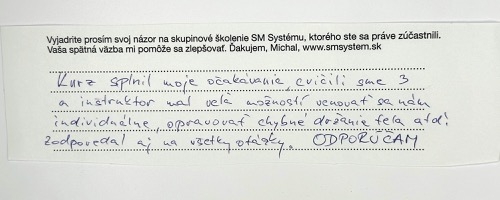 Vyjadrite prosím svoj názor na skupinové školenie SM Systému, ktorého ste sa práve zúčastnili.
Vaša spätná väzba mi pomôže sa zlepšovať. Ďakujem, Michal, www.smsystem.sk
Kurz splnil moje očakávanie, cvičili sme 3
a inštruktor mal veľa možností venovať sa nám
individuálne, opravovať chybné držanie tela atď.
Zodpovedal aj na všetky otázky. ODPORÚČAM